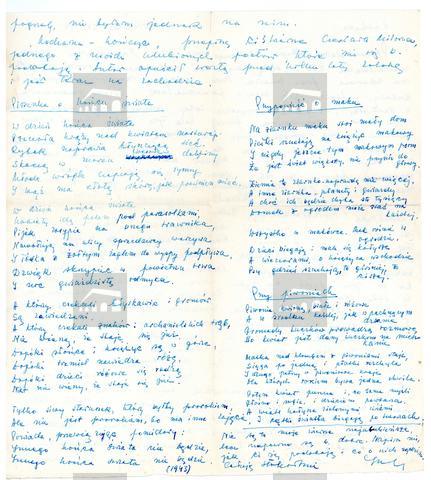 pogrzeb, nie byłam jednak na nim.
Kochana - kończę, przepiszę Ci Czesława Miłosza,
jednego z moich ulubionych poetów które mi się b.
podobają i autor opuścił swoją przed kilku laty
i jest teraz na zachodzie
Piosenka o końcu świata
W dzień końca świata
Pszczoła krąży nad kwiatem nasturcji
Rybak naprawia błyszczącą sieć.
Skaczą w morzu wesołe delfiny
Młode wróble czepiają się rynny
I wąż ma złotą skórę, jak powinien mieć.
W dzień końca świata
Kobiety idą polem pod parasolkami,
Pijak zasypia na brzegu trawnika,
Nawołują na ulicy sprzedawcy warzywa
I łódka z żółtym żaglem do wyspy podpływa,
Dźwięk skrzypiec w powietrzu trwa
I noc gwiaździstą odmyka.
A którzy czekali błyskawic i gromów
Są zawiedzeni.
A którzy czekali znaków i archanielskich trąb,
Nie wierzą, że staje się już.
Dopóki słońce i księżyc są w górze,
Dopóki trzmiel nawiedza różę,
Dopóki dzieci różowe się rodzą
Nikt nie wierzy, że staje się już.
Tylko siwy staruszek, który byłby prorokiem,
Ale nie jest prorokiem, bo ma inne zajęcie,
Powiada, przewiązując pomidory:
Innego końca świata nie będzie,
Innego końca świata nie będzie
(1943)
Przypowieść o maku
Na ziarnku maku stoi mały dom
Pieski szczekają na księżyc makowy
I nigdy jeszcze tym makowym psom
Że jest świat większy, nie przyszło do głowy.
Ziemia to ziarnko - naprawdę nie więcej,
A inne ziarnka - planety i gwiazdy
A choć ich będzie chyba sto tysięcy
Domek z ogrodem może stać na
każdej.
Wszystko w makówce. Mak rośnie w
ogrodzie.
Dzieci biegają i mak się kołysze
A wieczorami, o księżyca wschodzie
Psy gdzieś szczekają, to głośniej, to
ciszej.
Przy piwoniach
Piwonie kwitną, białe i różowe
A w środku każdej, jak w pachnącym
dzbanie,
Gromady żuczków prowadzą rozmowę,
Bo kwiat jest dany żuczkom na mieszkanie
Matka nad klombem z piwoniami staje,
Sięga po jedną i płatki rozchyla
I długo patrzy w piwoniowe kraje
Dla których rokiem bywa jedna chwila.
Potem kwiat puszcza i, co sama myśli
Głośno i dzieciom powtarza.
A wiatr kołysze zielonymi liśćmi